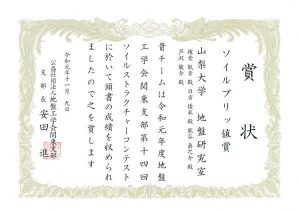 賞状
ソイルブリッヂ値賞
山梨大学 地盤研究室
殿 日吉優米殿 熊谷喜之介殿
戸沢駿介殿
貴チームは令和元年度地盤
工学会関東支部第十四回
ソイルストラクチャーコンテスト
に於いて頭書の成績を収められ
ましたので之を賞します
令和元年十一月九日
公益社団法人地盤工学会関東支部
支部長 安田 進